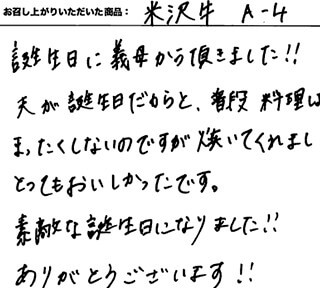 お召し上がりいただいた商品： 米沢牛 A-4
誕生日に義母から頂きました!!
夫が誕生日だからと、普段料理は
まったくしないのですが焼いてくれまし
とってもおいしかったです。
素敵な誕生日になりました!!
ありがとうございます!!